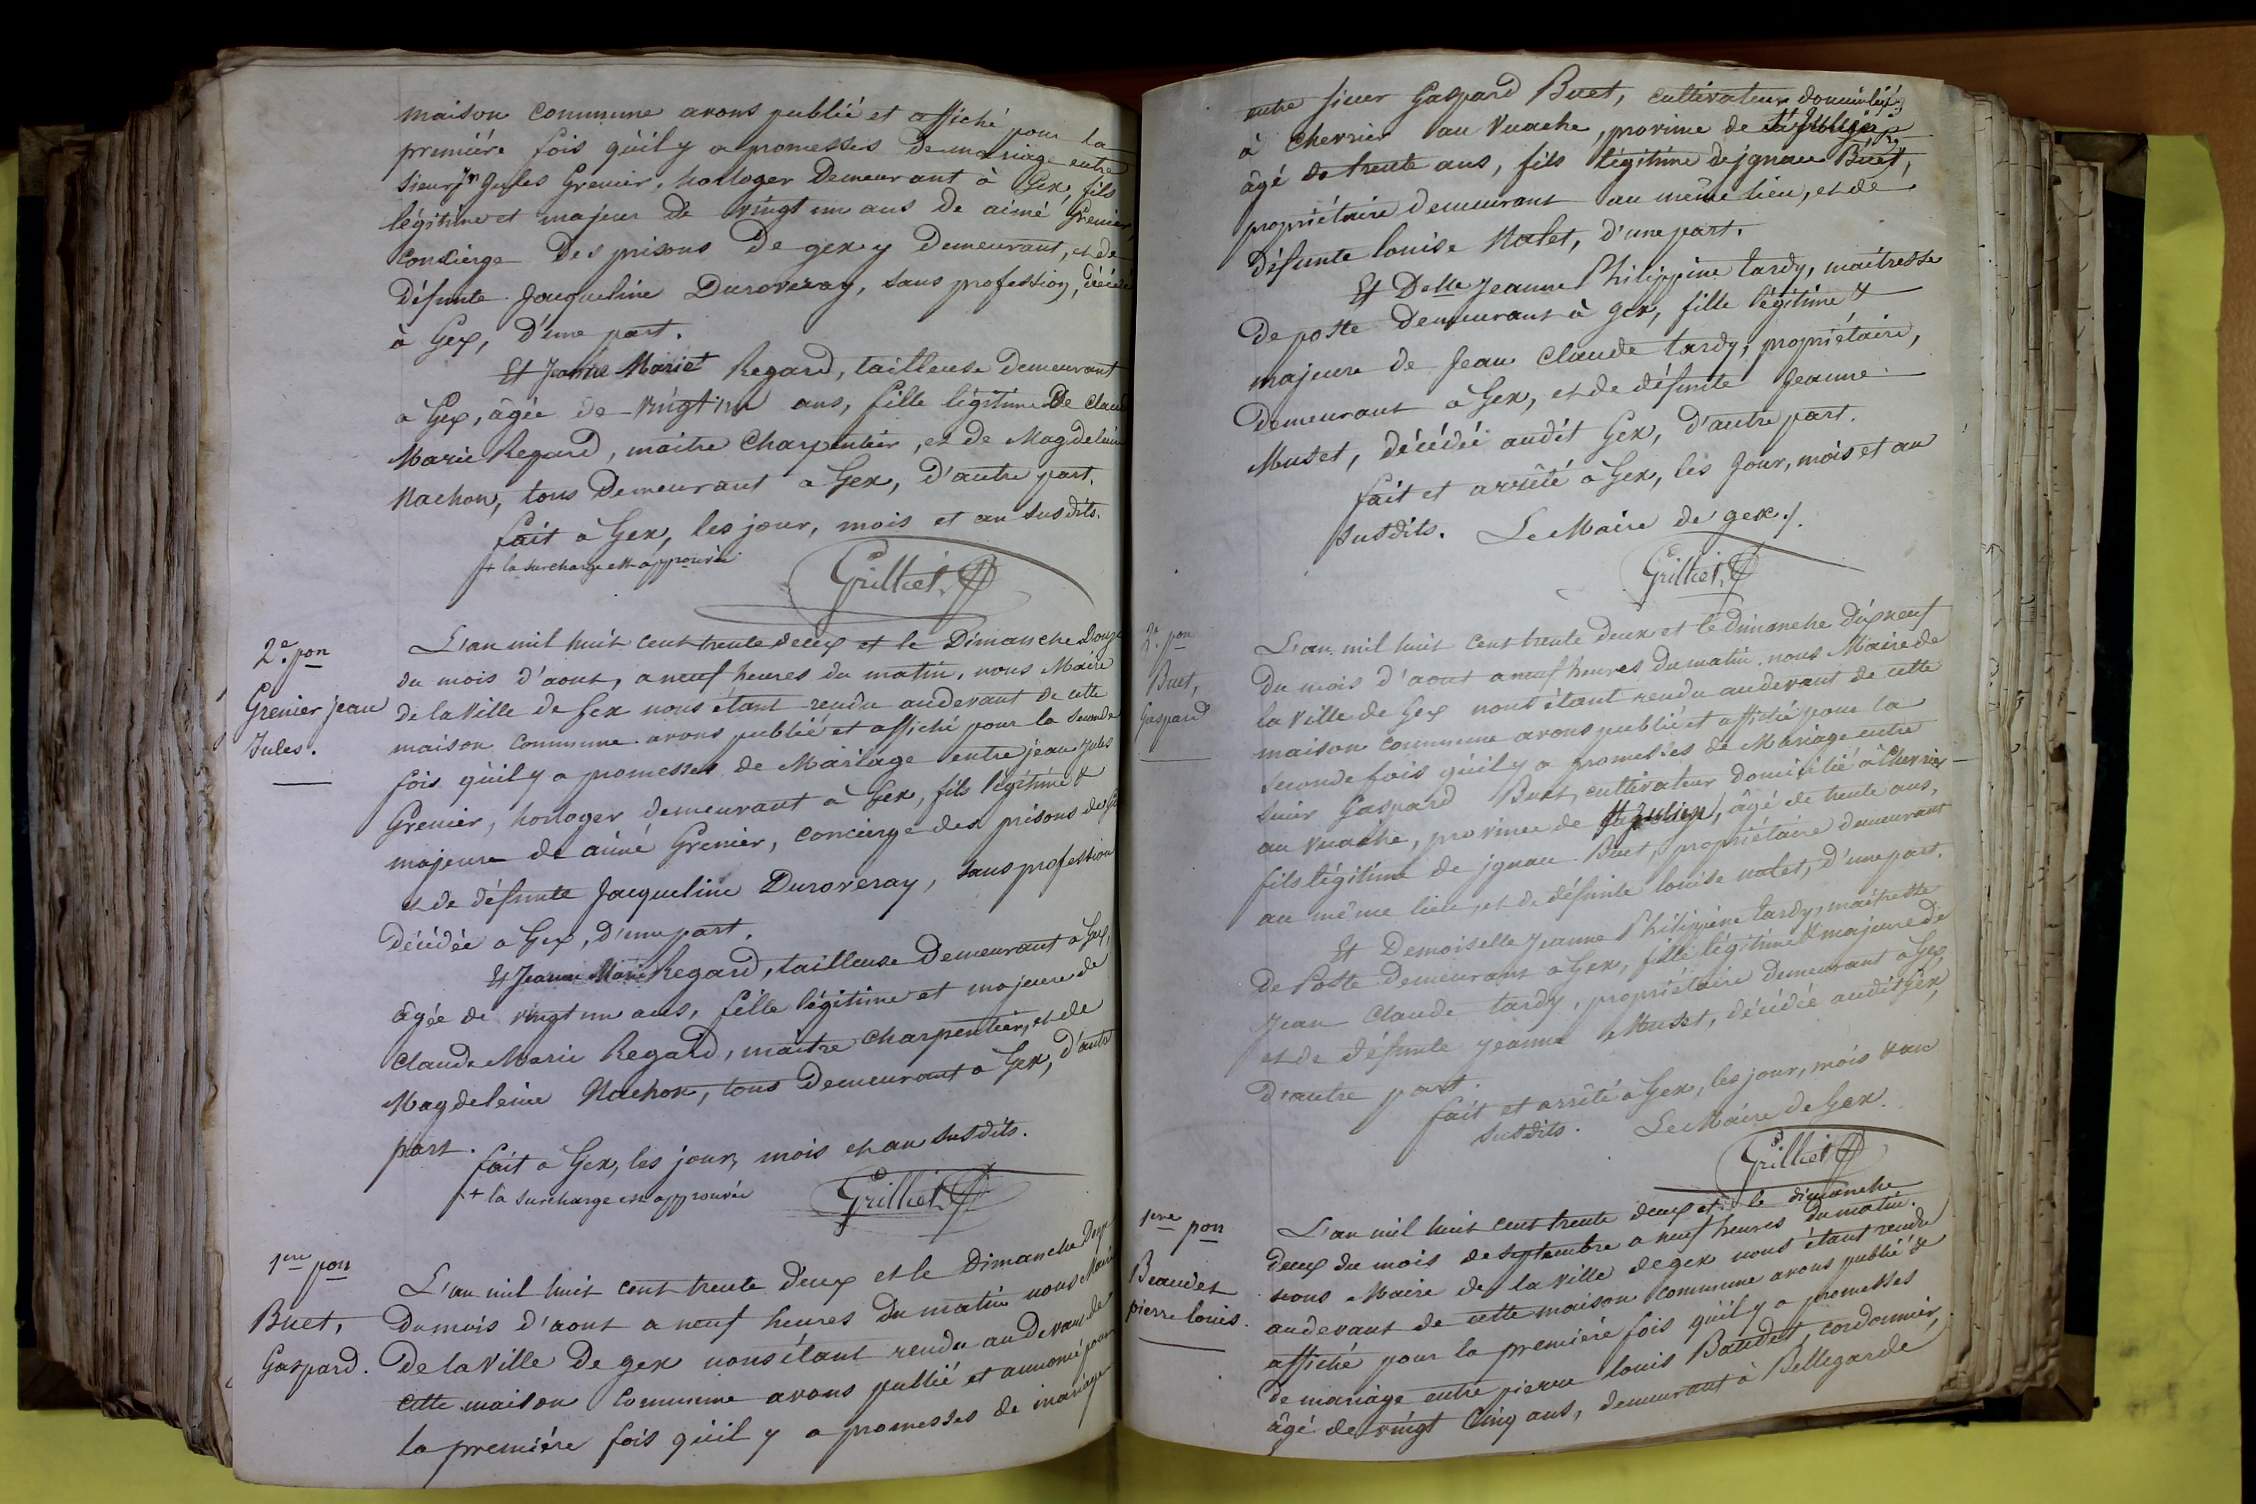 maison commune avons publié et affiché pour la
première fois qu'il y a promesses de mariage entre
sieur Jn Jules Grenier, horloger demeurant à Gex, fils
légitime et majeur de vingt un ans de aimé Grenier,
concierge des prisons de gex y demeurant, et de
défunte Jacqueline Duroveray, sans profession, décédée
à Gex, d'une part.
Et Jeanne Marie+ Regard, tailleuse demeurant
a Gex, âgée de vingt un ans, fille légitime De Claude
Marie Regard, maitre Charpentier, et de Magdeleine
Nachon, tous Demeurant a Gex, D'autre part.
fait a Gex, les jour, mois et an susdits.
+ la surcharge est approuvée
Grilliet
2e. pon
Grenier jean
Jules.
L'an mil huit cent trente deux et le Dimanche Douze
du mois d'aout, a neuf heures du matin, nous Maire
de la Ville de Gex nous étant rendu audevant de cette
maison commune avons publié et affiché pour la seconde
fois qu'il y a promesses de Mariage entre jean Jules
Grenier, horloger demeurant à Gex, fils légitime &
majeur de aimé Grenier, concierge des prisons de Gex
et de défunte Jacqueline Duroveray, sans profession
décédée a Gex, d'une part.
Et Jeanne Marie Regard, tailleuse Demeurant a Gex,
âgée de vingt un ans, fille légitime et majeure de
Claude Marie Regard, maitre charpentier, et de
Magdeleine Nachon, tous Demeurant a Gex, d'autre
part.
fait a Gex, les jour, mois et an susdits.
+ la surcharge est approuvée
Grilliet
1ere pon
Buet,
Gaspard.
L'an mil huit cent trente deux et le Dimanche Douze
Du mois d'aout a neuf heures Du matin nous Maire
De la Ville De gex nous étant rendu audevant de
cette maison commune avons publié et annoncé pour
la première fois qu'il y a promesses de mariage
entre sieur Gaspard Buet, cultivateur domicilié
à Chevrier au Vuache, province de St Julien,
âgé de trente ans, fils légitime de jgnace Buet,
propriétaire demeurant au même lieu, et de
défunte louise Nalet, d'une part.
Et Delle Jeanne Philippine tardy, maîtresse
De poste demeurant à gex, fille légitime &
majeure de Jean Claude tardy, propriétaire,
demeurant a Gex, et de défunte Jeanne
Musset, décédée audit Gex, d'autre part.
fait et arrêté à Gex, les jour, mois et an
susdits. Le Maire de gex.
Grilliet
2e. pon
Buet,
Gaspard
L'an mil huit cent trente deux et le dimanche dix neuf
Du mois d'aout a neuf heures du matin nous Maire de
la Ville de Gex nous étant rendu audevant de cette
maison commune avons publié et affiché pour la
seconde fois qu'il y a promesses de Mariage entre
sieur Gaspard Buet, cultivateur domicilié à Chevrier
au Vuache, province de St Julien, âgé de trente ans,
fils légitime de jgnace Buet, propriétaire demeurant
au même lieu, et de défunte louise nalet, d'une part.
Et Demoiselle Jeanne Philippine tardy, maîtresse
De Poste Demeurant a Gex, fille légitime & majeure de
Jean Claude tardy, propriétaire demeurant a Gex,
et de défunte jeanne Musset, décédée audit Gex,
d'autre part.
fait et arrêté a Gex, les jour, mois & an
susdits. Le Maire de Gex.
Grilliet
1ere pon
Beaudet
pierre louis.
L'an mil huit cent trente deux et le dimanche
deux du mois de septembre a neuf heures du matin.
nous Maire de la ville de gex nous étant rendu
audevant de cette maison commune avons publié &
affiché pour la première fois qu'il y a promesses
De mariage entre pierre louis Baudet, cordonnier,
âgé de vingt Cinq ans, demeurant à Bellegarde